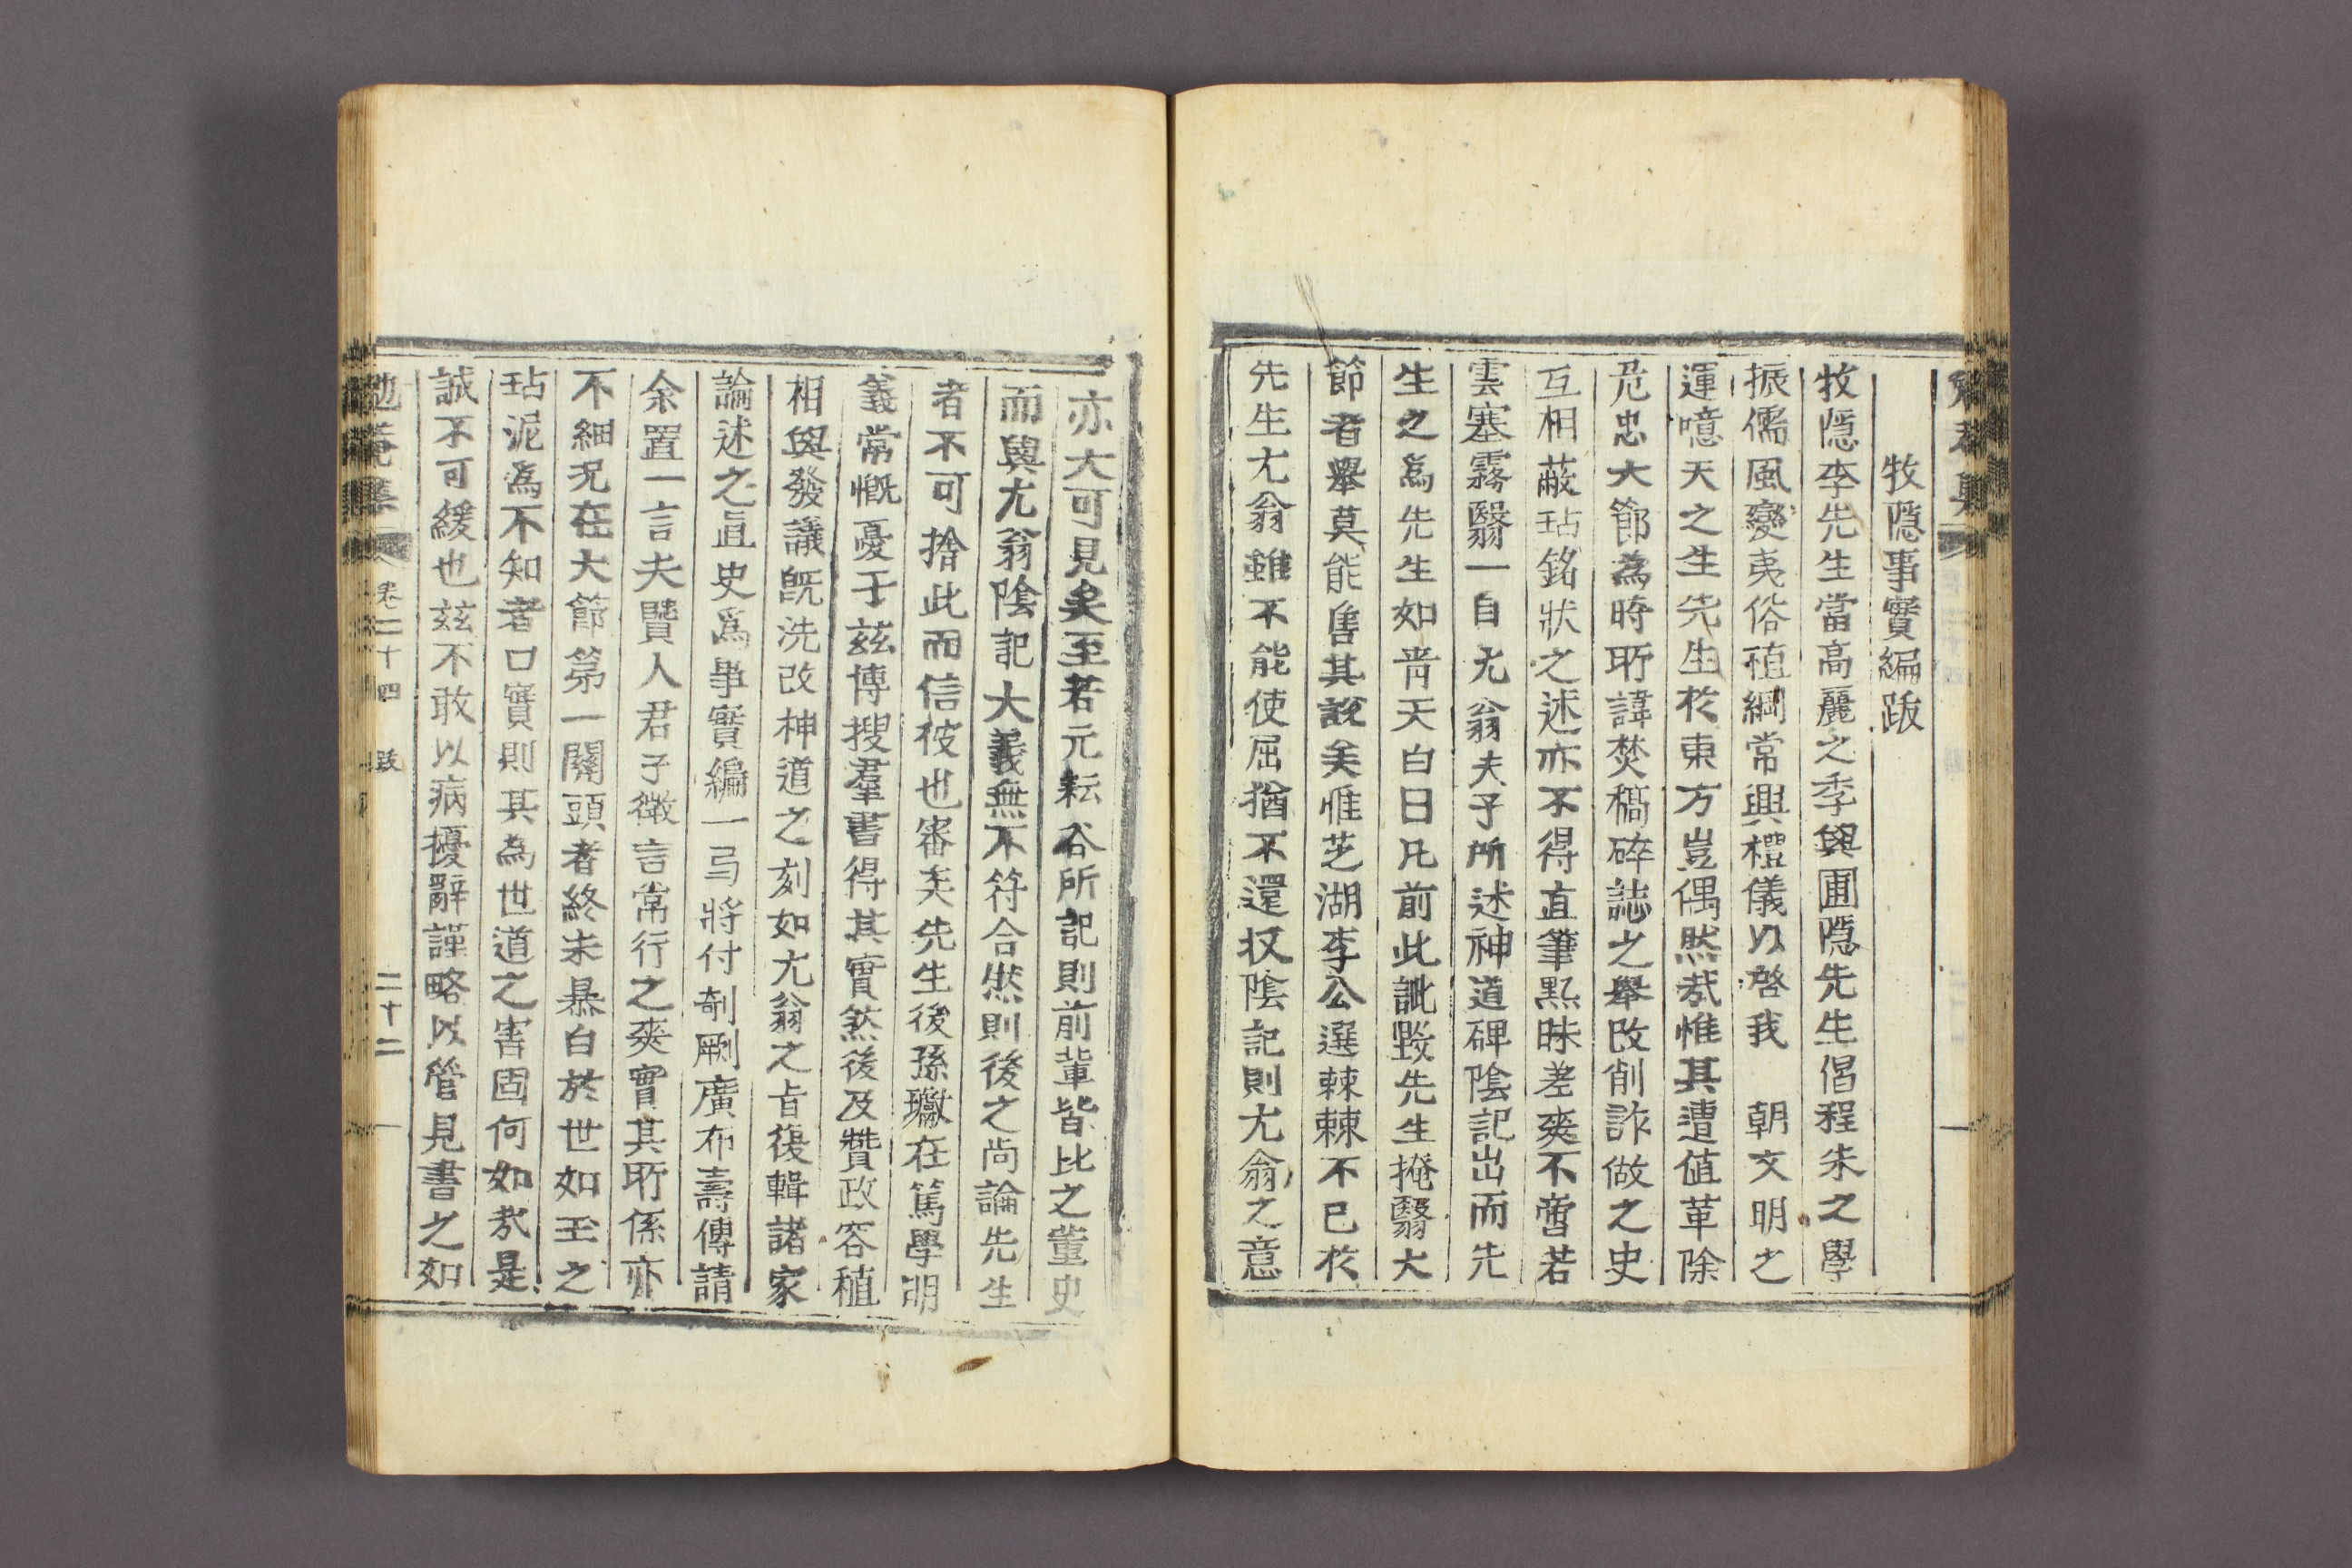 牧隱事實編跋
牧隱李先生當高麗之季與圃隱先生倡程朱之學
振儒風變夷俗植綱常興禮儀以啓我　朝文明之
運噫天之生先生於東方豈偶然哉惟其遭値革除
危忠大節為時所諱焚稿碎誌之擧改削詐做之史
互相蔽玷銘狀之述亦不得直筆點昧差爽不啻若
雲塞霧翳一自尤翁夫子所述神道碑陰記出而先
生之爲先生如靑天白日凡前此訛毀先生掩翳大
節者擧莫能售其說矣惟芝湖李公選棘棘不已於
先生尤翁雖不能使屈猶不還扠陰記則尤翁之意
亦大可見矣至若元耘谷所記則前輩皆比之董史
而與尤翁陰記大義無不符合然則後之尚論先生
者不可捨此而信彼也審矣先生後孫璥在篤學明
義常慨憂于兹博搜羣書得其實然後及贊政容稙
相與發議旣洗改神道之刻如尤翁之旨復輯諸家
論述之直史爲事實編一弓將付剞劂廣布壽傳請
余置一言夫贒人君子微言常行之爽實其所係亦
不細况在大節第一關頭者終未暴白於世如玉之
玷泥為不知者口實則其為世道之害固何如哉是
誠不可緩也玆不敢以病擾辭謹略以管見書之如
勉菴集　卷二十四　跋　二十二